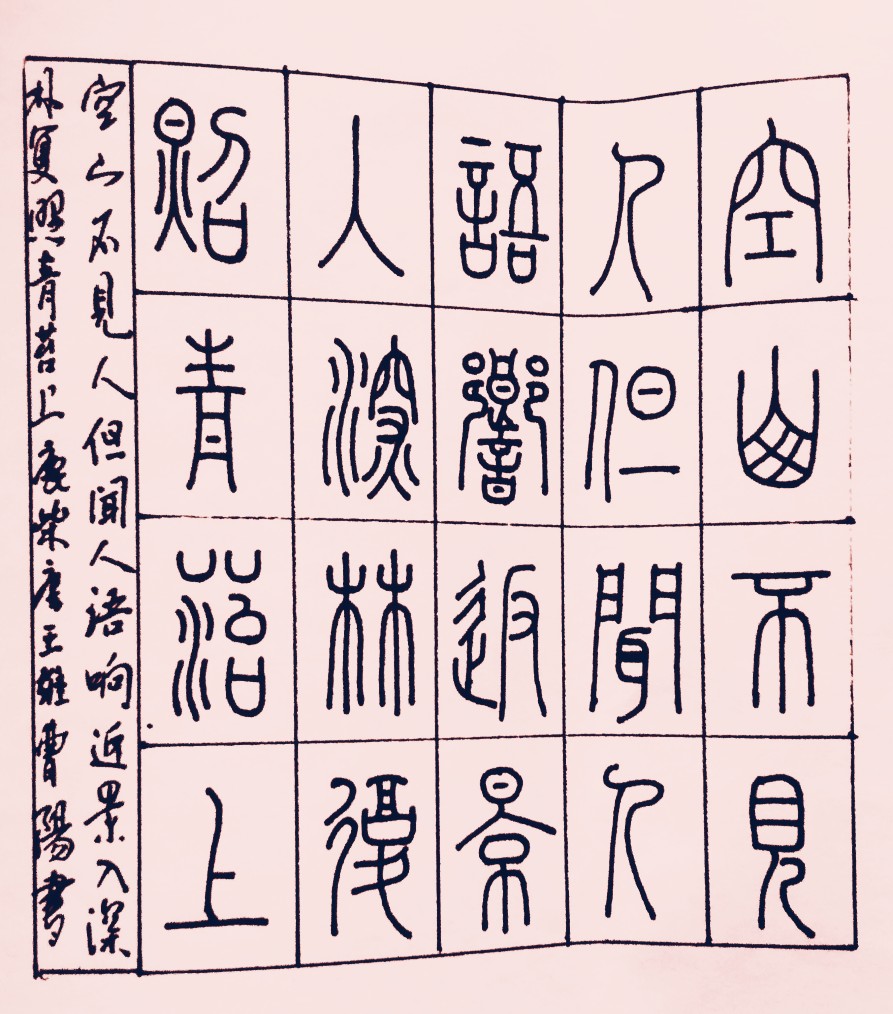 空山不見
人但聞人
語響返景
入深林復
照青菭上
空山不見人但聞人語响返景入深
林复照青苔上鹿柴唐王維曹陽書